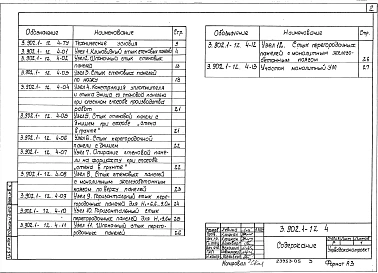 2
Обозначение Наименование Стр.
3.902.1-12 4-ТУ Технические условия 3
3.902.1-12 4-01 Узел 1. Клиновидный стык стеновых панелей 4
3.902.1-12 4-02 Узел 2. Шпоночный стык стеновых панелей 13
3.902.1-12 4-03 Узел 3. Стык стеновых панелей по ножу 18
3.902.1-12 4-04 Узел 4. Конструкция уплотнителя
и стыка днища со стеновой панелью
при опускном способе производства
работ 21
3.902.1-12 4-05 Узел 5. Стык стеновой панели с
днищем при способе "стена
в грунте" 21
3.902.1-12 4-06 Узел 6. Стык перегородочной
панели с днищем 22
3.902.1-12 4-07 Узел 7. Опирание стеновой панели
на форшахту при способе
"стена в грунте" 22
3.902.1-12 4-08 Узел 8. Стык стеновых панелей
с монолитным железобетонным
поясом по верху панелей 23
3.902.1-12 4-09 Узел 9. Горизонтальный стык перегородочных
панелей 24
3.902.1-12 4-10 Узел 10. Горизонтальный стык
перегородочных панелей
3.902.1-12 4-11 Узел 11. Шпоночный стык перегородочных
панелей
Обозначение Наименование Стр.
3.902.1-12 4-12 Узел 12. Стык перегородочных
панелей с монолитным железобетонным
поясом 26
3.902.1-12 4-13 Участок монолитный УМ 27
3.902.1-12 4
Содержание
Копировал
23953-05 3
Формат А3